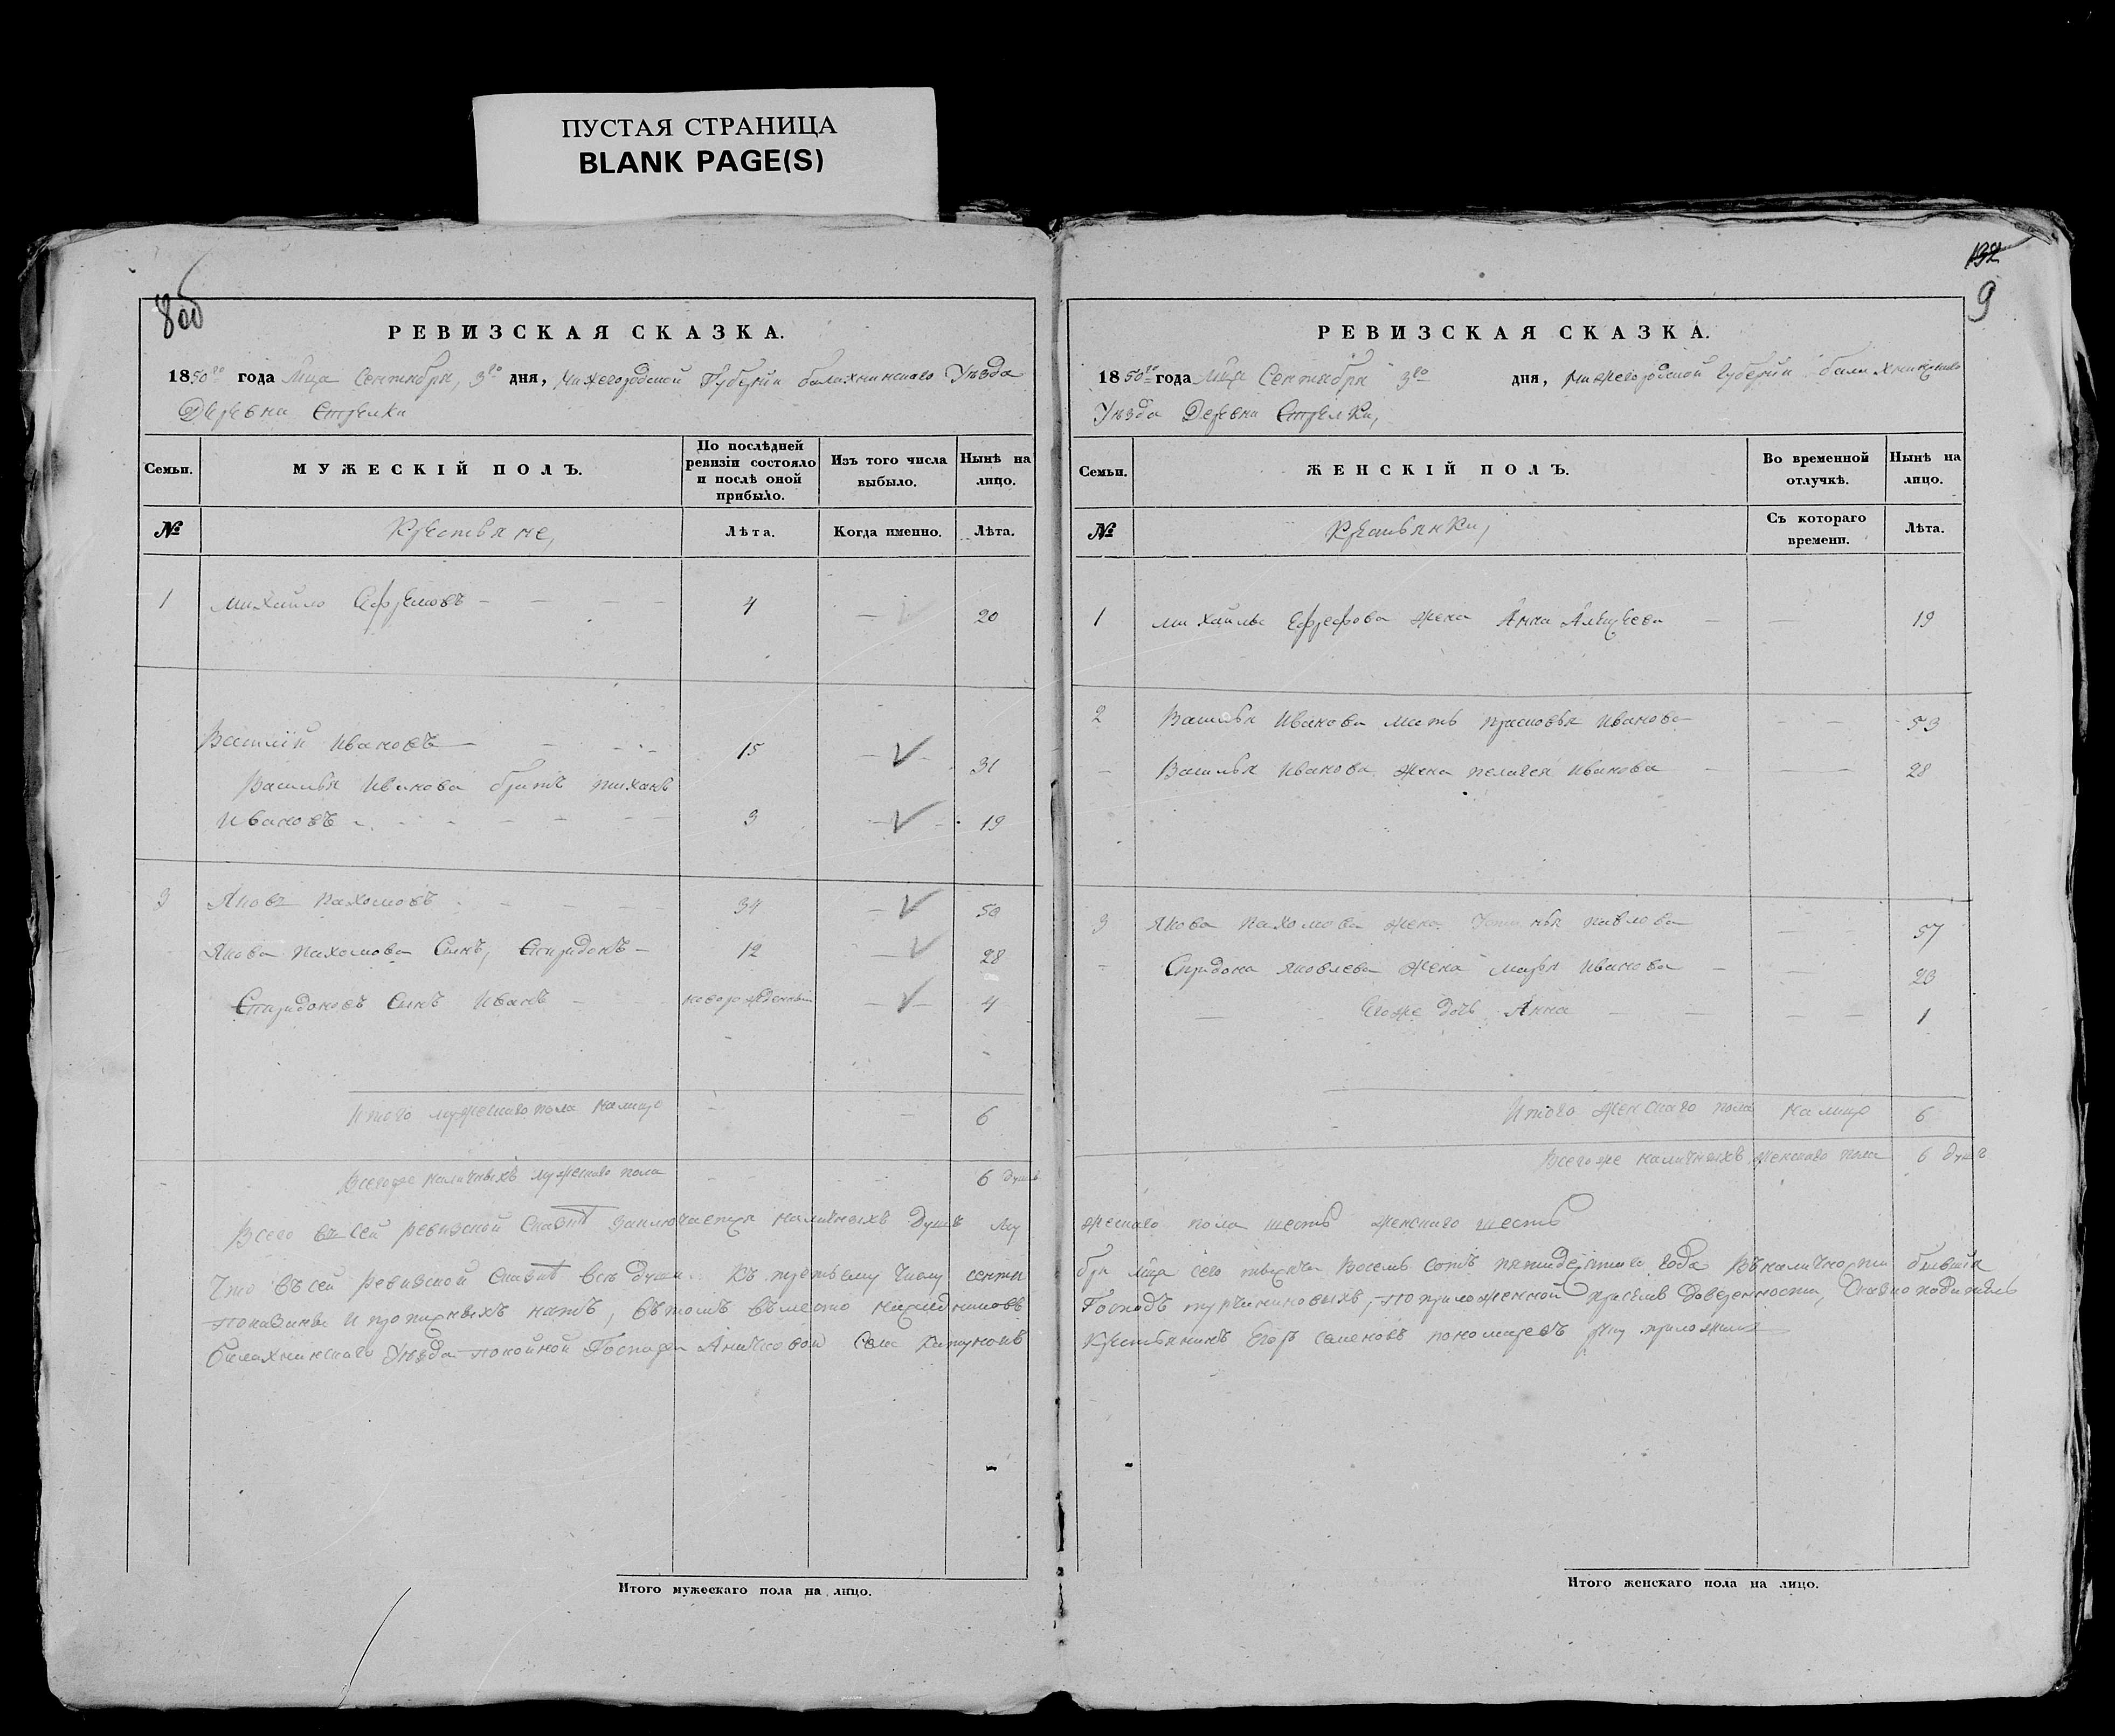 ПУСТАЯ СТРАНИЦА
BLANK PAGE(S)
8об
РЕВИЗСКАЯ СКАЗКА.
1850го года Мца Сентября, 3го дня, Нижегородской Губернiи балахнинскаго Уѣзда
Деревни Стрелки
Семьи. МУЖЕСКІЙ ПОЛЪ. По послѣдней ревизіи состояло и послѣ оной прибыло. Изъ того числа выбыло. Нынѣ на лицо.
№ Крестьяне, Лѣта. Когда именно. Лѣта.
1 михайло Ефремовъ 4 20
Василiй Ивановъ 15 31
Василья Иванова братъ
Ивановъ 3 19
3 Яковъ Пахомовъ 34 50
Якова Пахомова Сынъ, Спиридонъ 12 28
Спиридоновъ Сынъ Иванъ новорожденный 4
Итого мужескаго пола налицо 6
Всегоже наличныхъ мужескаго пола 6 душъ
Всего въ сей ревизской Сказкѣ заключается наличныхъ душъ му
Что въ сей Ревизской Сказкѣ всѣ души къ третьему числу сентя
показаны и прописныхъ нѣтъ, въ томъ вместо наследниковъ
балахнинскаго Уѣзда покойной Госпожи Аничковой Села Катунокъ
Итого мужескаго пола на лицо.
132
9
РЕВИЗСКАЯ СКАЗКА.
1850го года Мца Сентября 3го дня, нижегородской Губернiи балахнинскаго
Уѣзда Деревни Стрелки,
Семьи. ЖЕНСКІЙ ПОЛЪ. Во временной отлучкѣ. Нынѣ на лицо.
№ Крестьянки, Съ котораго времени. Лѣта.
1 михайлы жена Анна 19
2 Василья Иванова мать прасковья Иванова 53
Василья Иванова жена пелагея Иванова 28
3 Якова Пахомова жена павлова 57
Спридона Яковлева жена марья Иванова 23
Егоже дочь Анна 1
Итого женскаго пола налицо 6
Всегоже наличныхъ женскаго пола 6 душъ
жескаго пола шесть женскаго шесть
бря мца сего тысяча Восемь сотъ пятидесятаго года въ наличности бывшiя
Господъ по приложенной при семъ доверенности,
Крестьянинъ Егоръ семеновъ пономаревъ руку приложилъ
Итого женскаго пола на лицо.